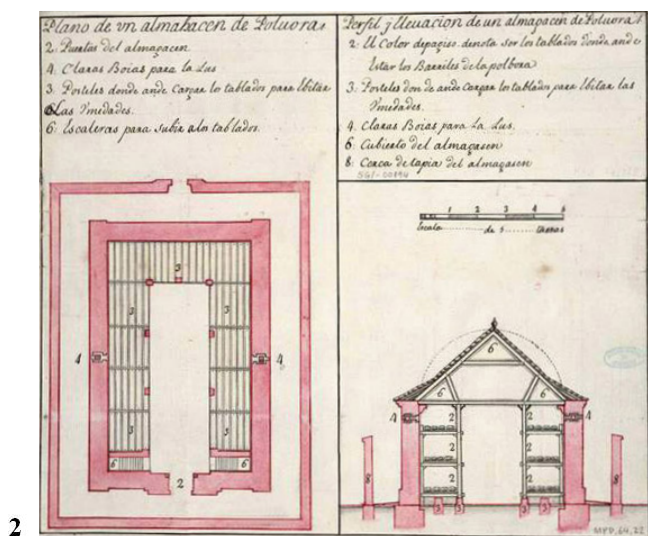 Plano de vn almahacen de Poluora
2: Puertas del almagacen
4. Claras Boias para la Lus
3. Posteles donde ande Cargar los tablados para Ebitar
Las Ymedades.
6: Escaleras para subir alos tablados.
3
3
3
3
3
4
4
6
6
2
Perfil j lleuacion de un almagacen de Poluora
2: El Color depagiso. denota ser los tablados donde ande
Estar los Barriles de la polbora
3: Posteles don de ande Cargar los tablados para Ebitar las
Ymedades.
4. Claras Boias para La Lus.
6: Cubierto del almagasen
8: Cerca de tapia del almagasen
SGI-00894
1 2 3 4 5
Escala de 5
6
6
6
4
4
2
2
2
2
2
2
8
8
3
3
3
3
MPD,64,22
2